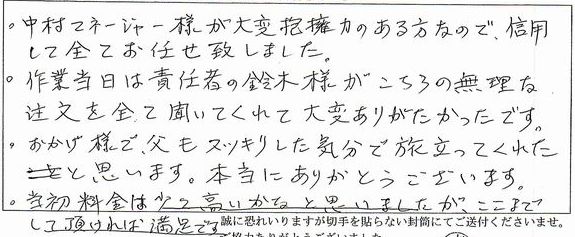 。中村マネージャー様が大変抱擁力のある方なので、信用
して全てお任せ致しました。
。作業当日は責任者の鈴木様がこちらの無理な
注文を全て聞いてくれて大変ありがたかったです。
。おかげ様で、父もスッキリした気分で旅立ってくれた
と思います。本当にありがとうございます。
。当初料金は少々高いかなと思いましたが、ここまで
して頂ければ満足です
誠に恐れいりますが切手を貼らない封筒にてご送付くださいませ。
ご協力ありがとうございました